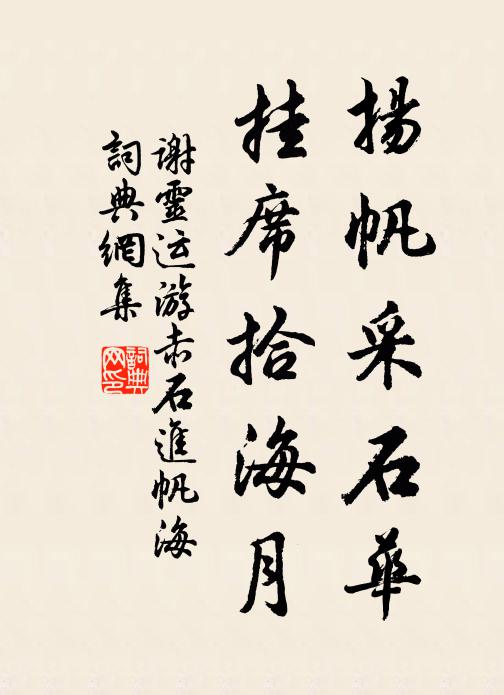 揚帆采石華
挂席拾海月
謝靈运游赤石進帆海
詞典網集
詞典网印